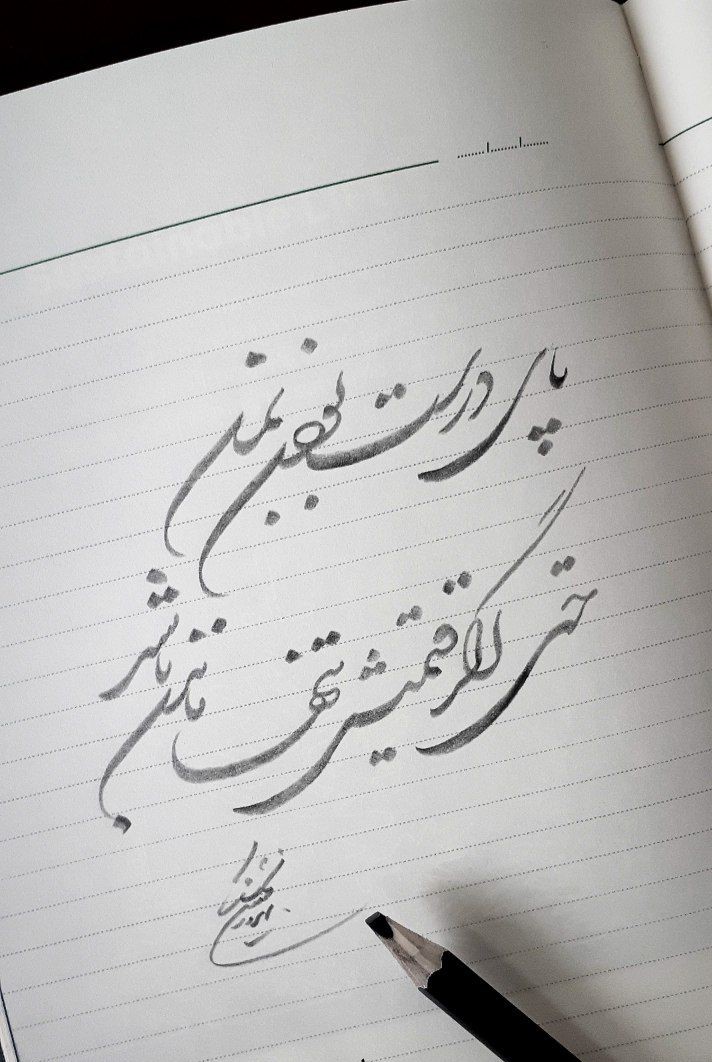 پای درست بودن بمان
حتی اگر قیمتش تنها ماندن باشد